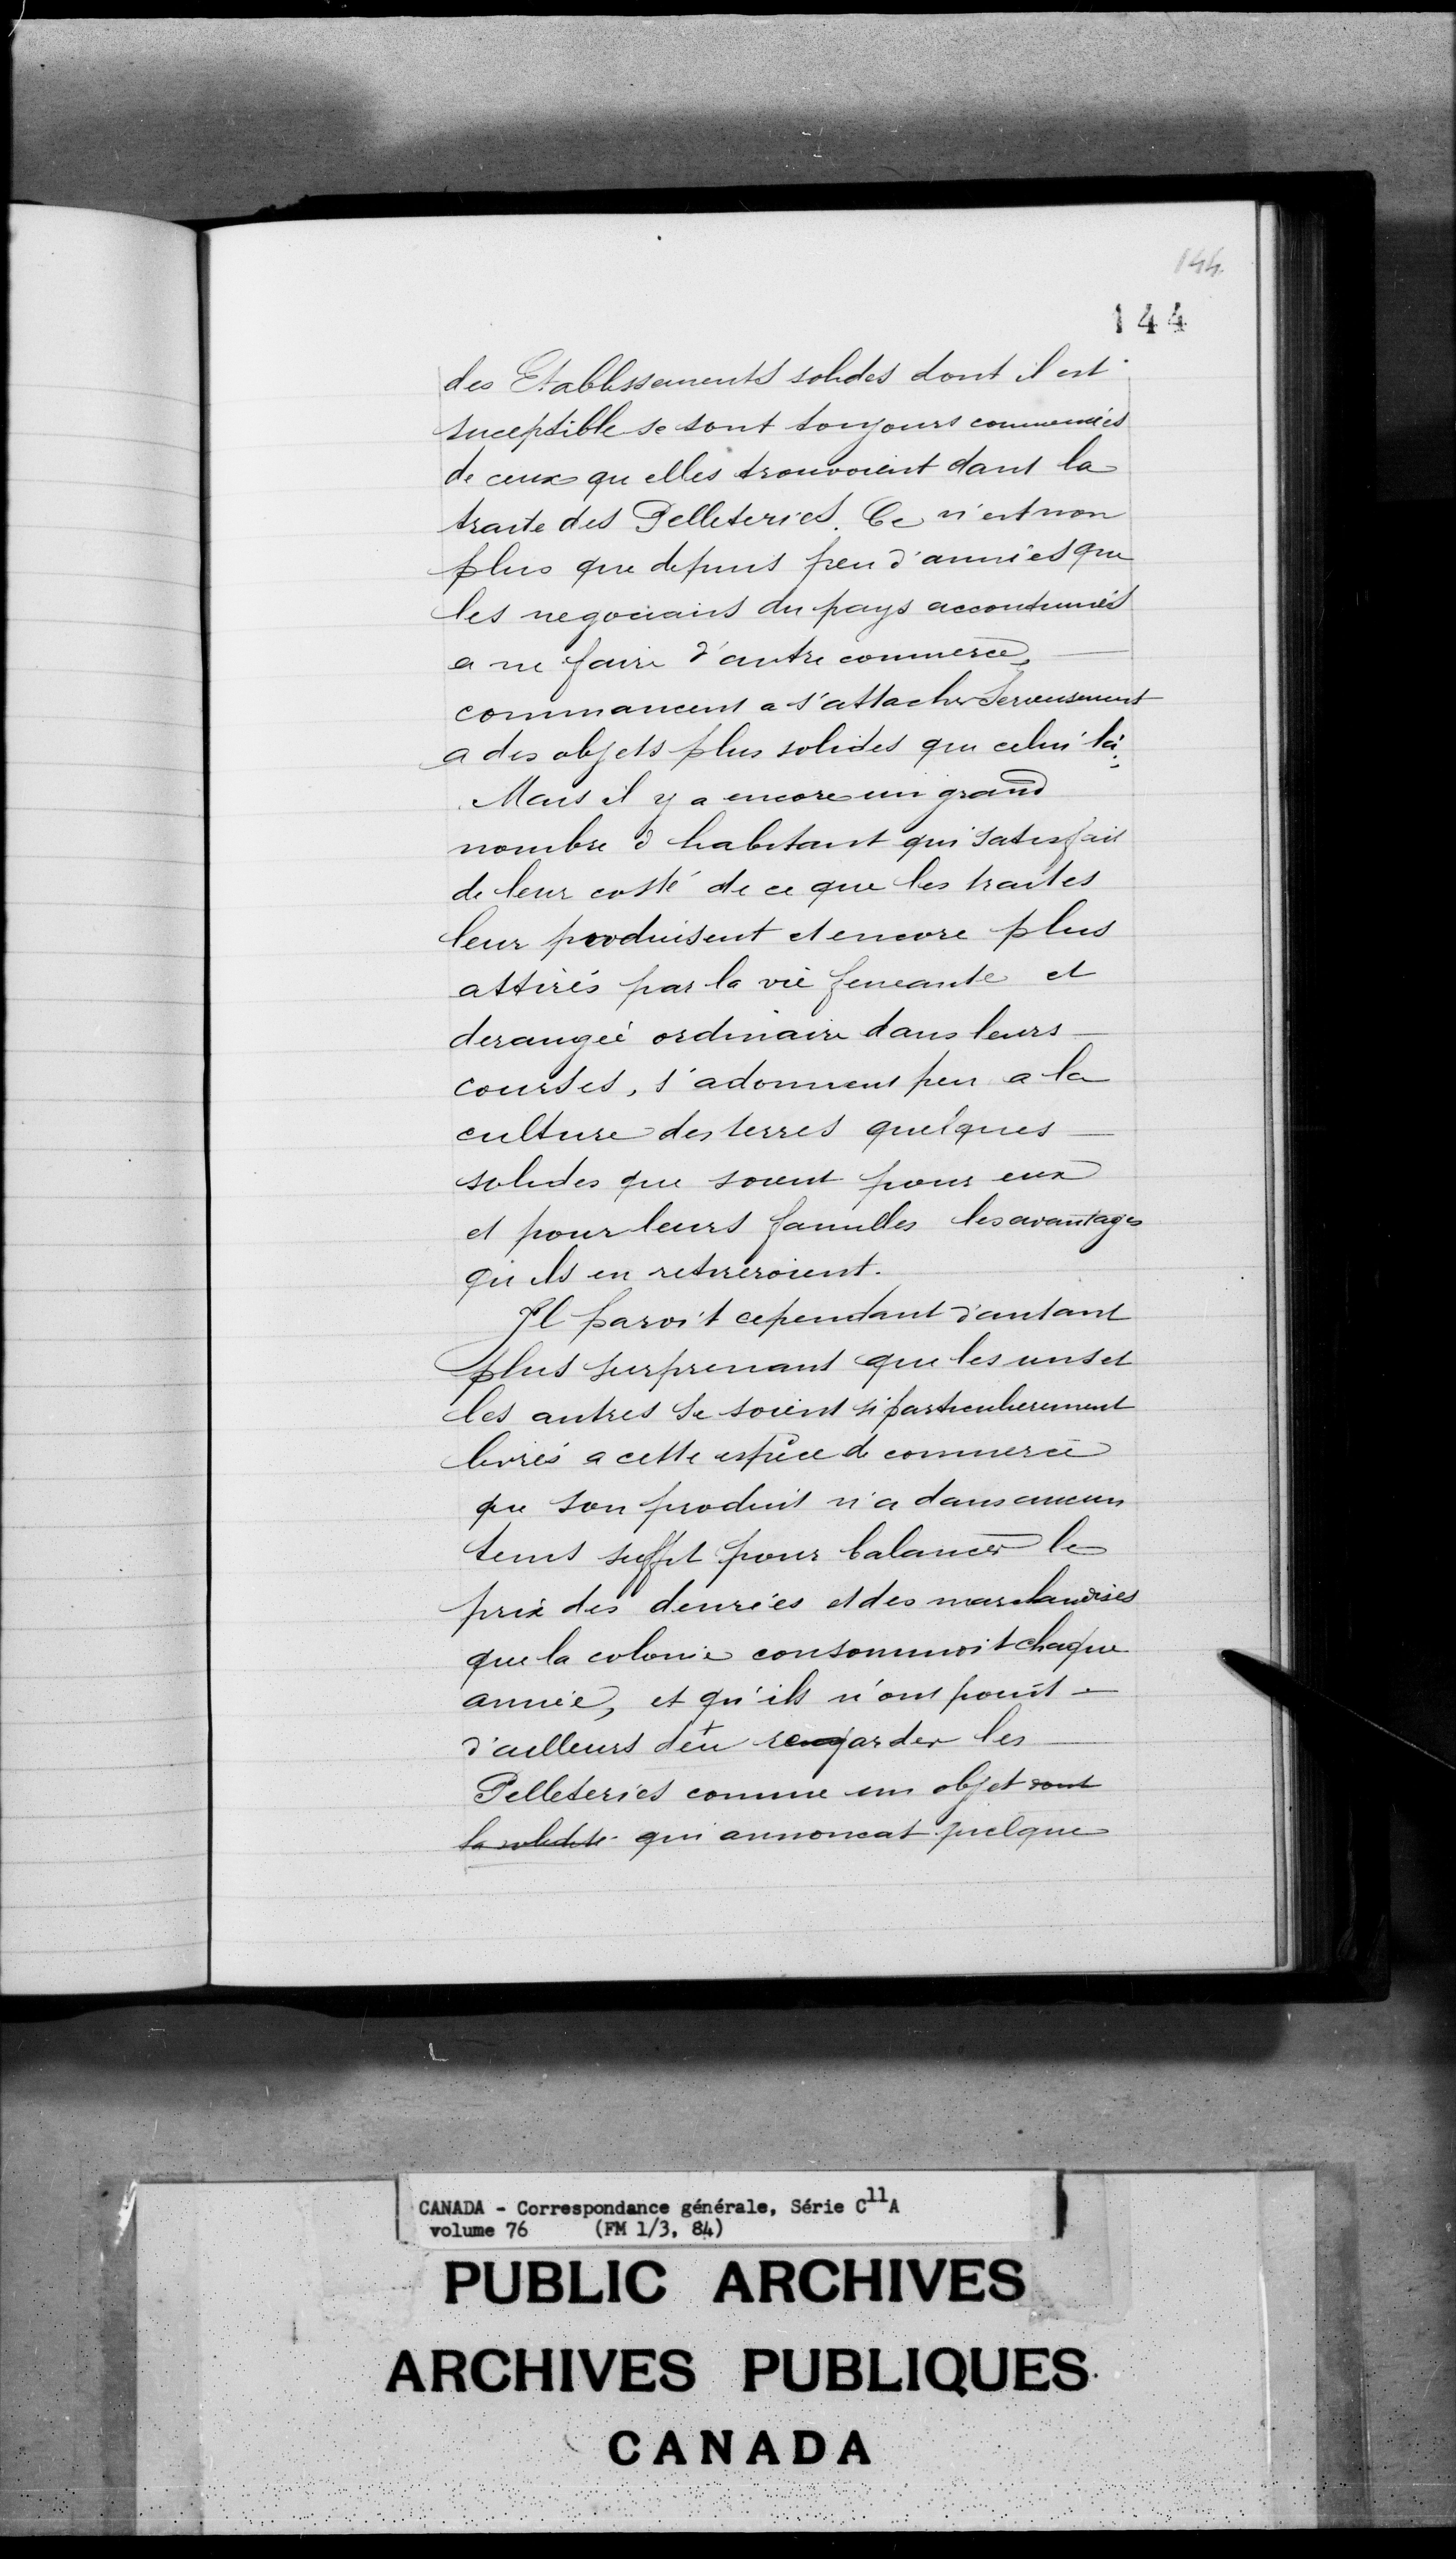 144
144
des Etablissements solides dont il est
suceptible se sont toujours commencés
de ceux qu elles trouvoient dans la
traite des Pelleteries. Ce n'est non
plus que depuis peu d'années que
les negocians du pays accoutumés
a ne faire d'autre commerce,
commancent a s'attacher Serieusement
a des objets plus solides que celui là;
Mais il y a encore un grand
nombre d habitant qui satisfait
de leur costé de ce que les traites
leur produisent et encore plus
attirés par la vie feneante et
derangée ordinaire dans leurs
courses, s'adonnent peu a la
culture des terres quelques
solides que soient pour eux
et pour leurs familles les avantages
qu ils en retireroient.
Il paroit cependant d'autant
plus surprenant que les uns et
les autres se soient si particulierement
livrés a cette espèce de commerce
que son produit n'a dans aucun
tems suffit pour balancer le
prix des denrées et des marchandises
que la colonie consommoit chaque
année, et qu'ils n'ont point
d'ailleurs deu regarder les
Pelleteries comme un objet dont
la solidité qui annoncat quelque
CANADA - Correspondance générale, Série C11A
volume 76 (FM 1/3, 84)
PUBLIC ARCHIVES
ARCHIVES PUBLIQUES
CANADA